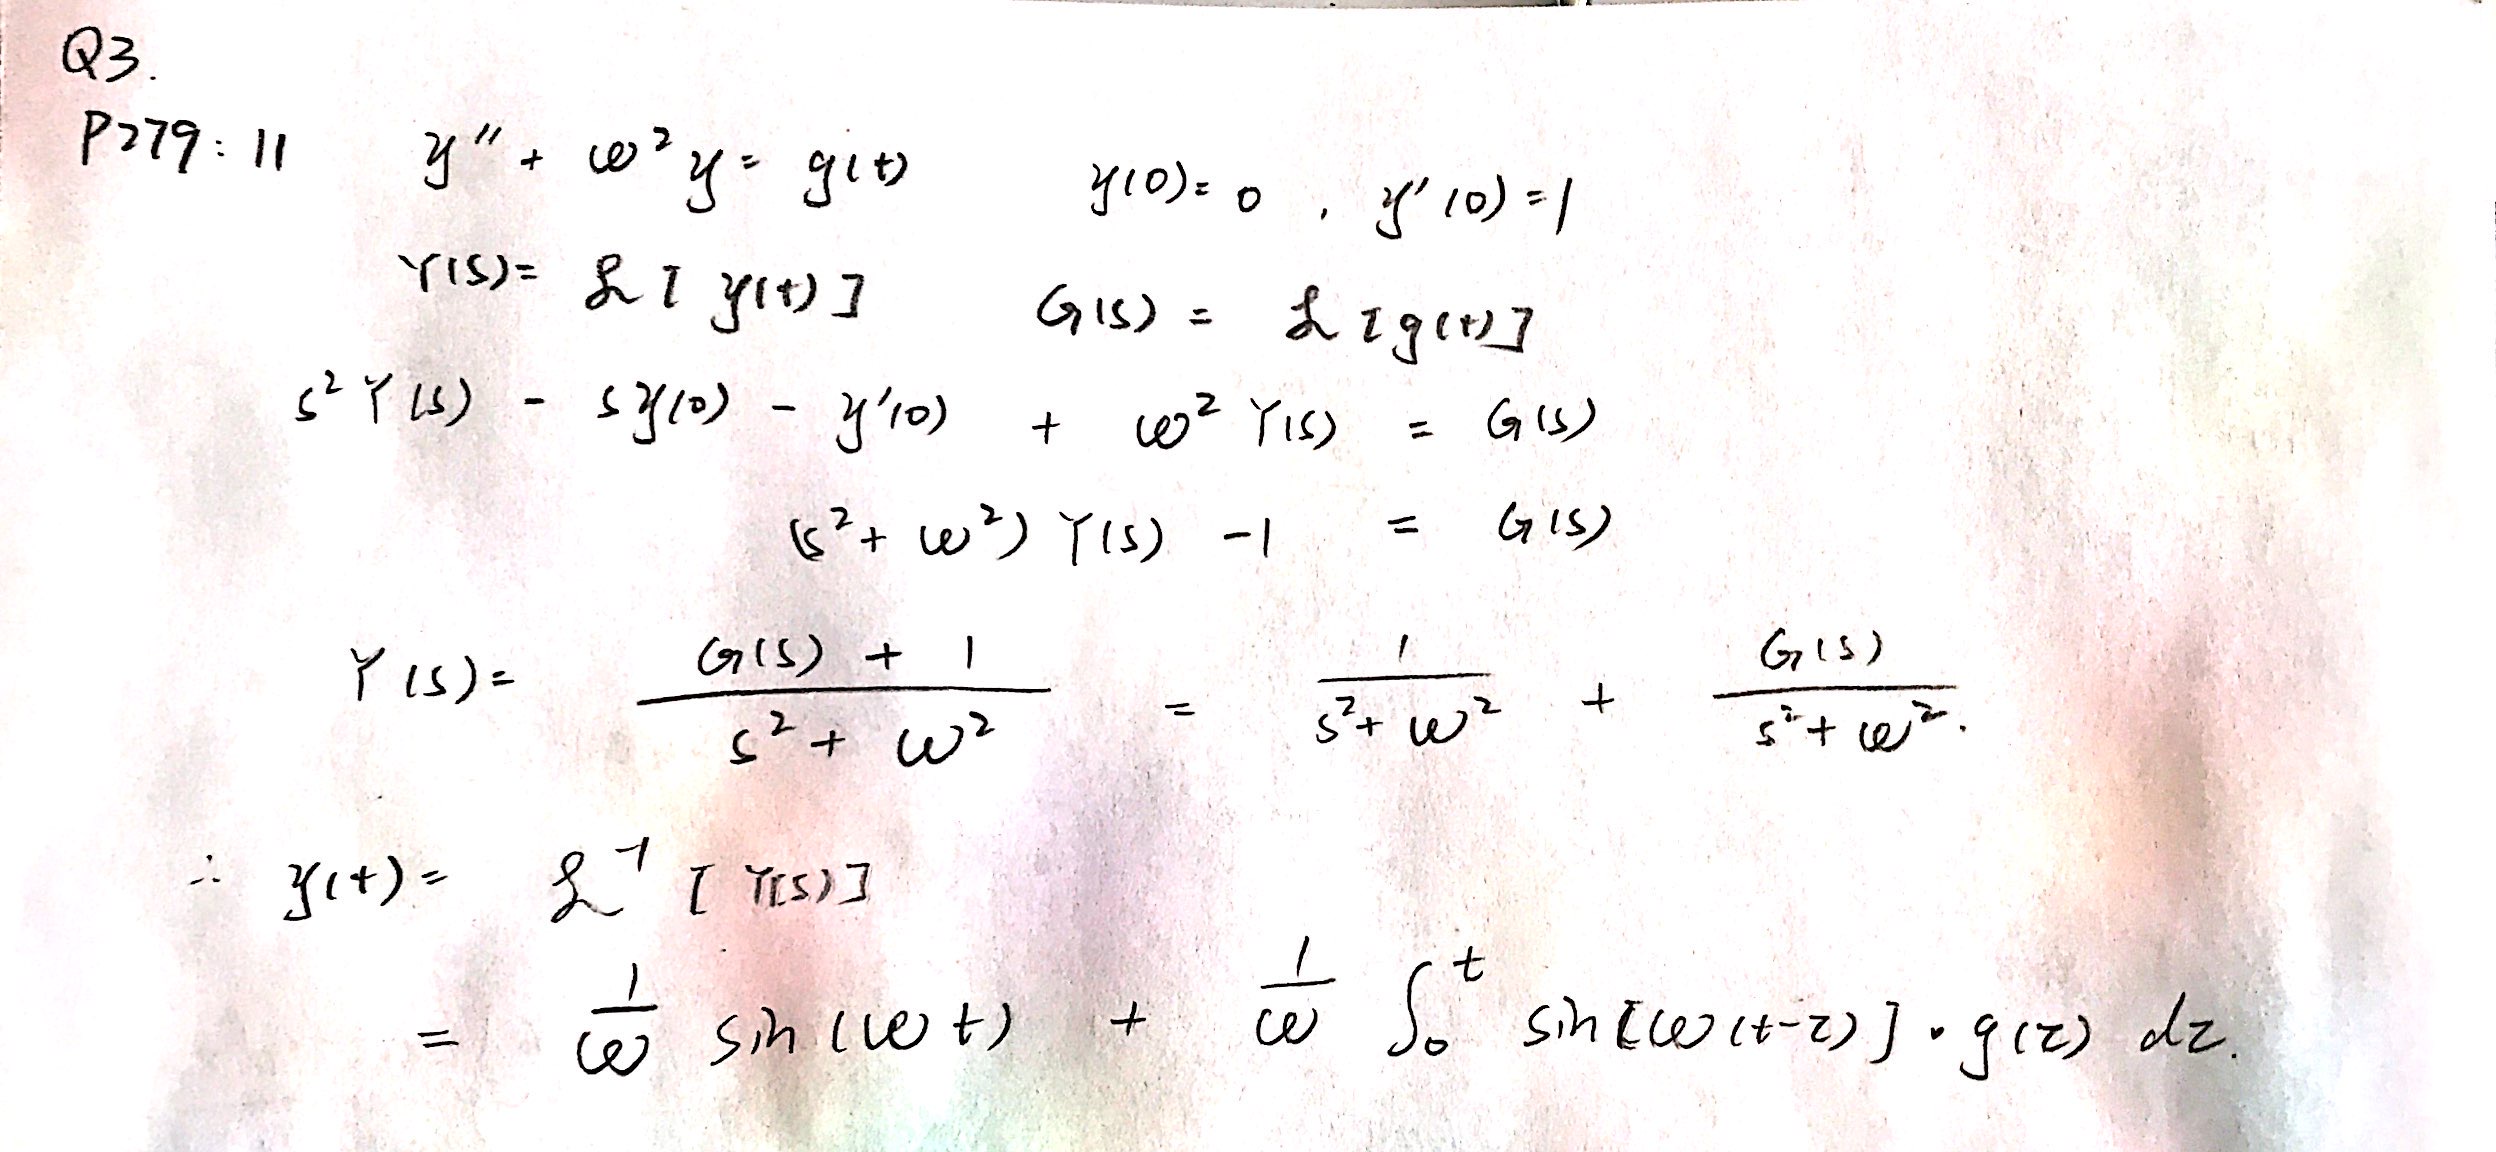 Q3.
P279: 11 y'' + ω² y = g(t) y(0) = 0 , y'(0) = 1
Y(s) = ℒ[y(t)] G(s) = ℒ[g(t)]
s² Y(s) - sy(0) - y'(0) + ω² Y(s) = G(s)
(s² + ω²) Y(s) - 1 = G(s)
Y(s) = (G(s) + 1)/(s² + ω²) = 1/(s² + ω²) + G(s)/(s² + ω²).
∴ y(t) = ℒ⁻¹ [Y(s)]
= 1/ω sin(ωt) + 1/ω ∫₀ᵗ sin[ω(t-τ)] · g(τ) dτ.